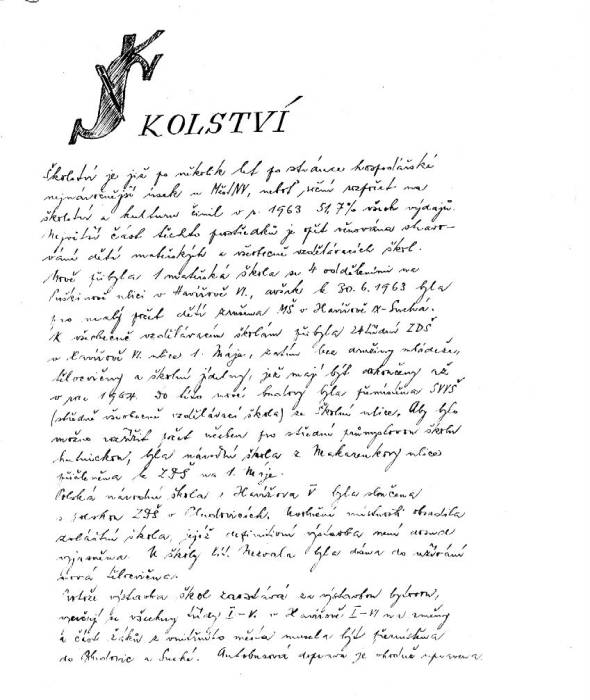 ŠKOLSTVÍ
Školství je již po několik let po stránce hospodářské
nejnáročnější úsek u MěstNV, neboť roční rozpočet na
školství a kulturu činil v r. 1963 51,7% všech výdajů.
Největší část těchto prostředků je opět věnována stravo-
vání dětí mateřských a všeobecně vzdělávacích škol.
Nově přibyla 1 mateřská škola se 4 odděleními na
Puškinově ulici v Havířově VI., avšak k 30.6.1963 byla
pro malý počet dětí zrušena MŠ v Havířově X-Suchá.
K všeobecně vzdělávacím školám přibyla 24třídní ZDŠ
v Havířově VI. ulice 1. Máje, zatím bez družiny mládeže,
tělocvičny a školní jídelny, jež mají být dokončeny až
v roce 1964. Do této nové budovy byla přemístěna SVVŠ
(středně všeobecně vzdělávací škola) ze Školní ulice. Aby bylo
možno rozšířit počet učeben pro střední průmyslovou školu
hutnickou, byla národní škola z Makarenkovy ulice
přičleněna k ZDŠ na 1. Máje.
Polská národní škola z Havířova V byla sloučena
s polskou ZDŠ v Bludovicích. Uvolněné místnosti obsadila
zvláštní škola, jejíž definitivní výstavba není dosud
vyjasněna. U školy tř. Nezvala byla dána do užívání
nová tělocvična.
Protože výstavba škol zaostává za výstavbou bytovou,
vyučují se všechny třídy I-V. v Havířově I-VI na směny
a část žáků z vnitřního města musela být přemístěna
do Bludovic a Suché. Autobusová doprava je vhodně upravena.